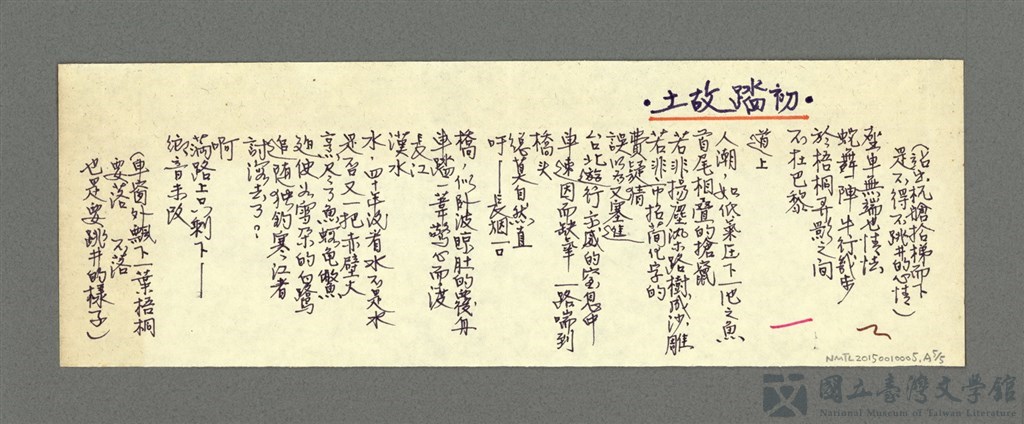 •初踏故土•
(話出杭搶拾梯而下
是不得不跳井的心情)
坐車無端也怯怯
蛇舞陣 牛行緩步
於梧桐弄影之間
不在巴黎
道上
人潮,如低氣压下一池之魚
首尾相疊的搶竄
若非揚塵染路樹成沙雕
若非中招簡化字的
費疑猜
誤以為又塞進
台北遊行示威的窒息中
車速因而缺事 一路喘到
橋头
總莫自然直
吁——長烟一口
橋,似卧波晾肚的
車踏一葦驚心而渡
長江
漢水
水,四十年沒看水不是水
是否又一把赤壁大火
烹尽了魚蝦龜鱉
迫使如雪朵的白鷺
追隨独釣寒江者
訴泣去了?
啊
滿路上只剩下——
鄉音未改
(車窗外飄下一葉梧桐
要落 不落
也是要跳井的樣子)
NMTL20150010005,A5/5
國立臺灣文學館
National Museum of Taiwan Literature